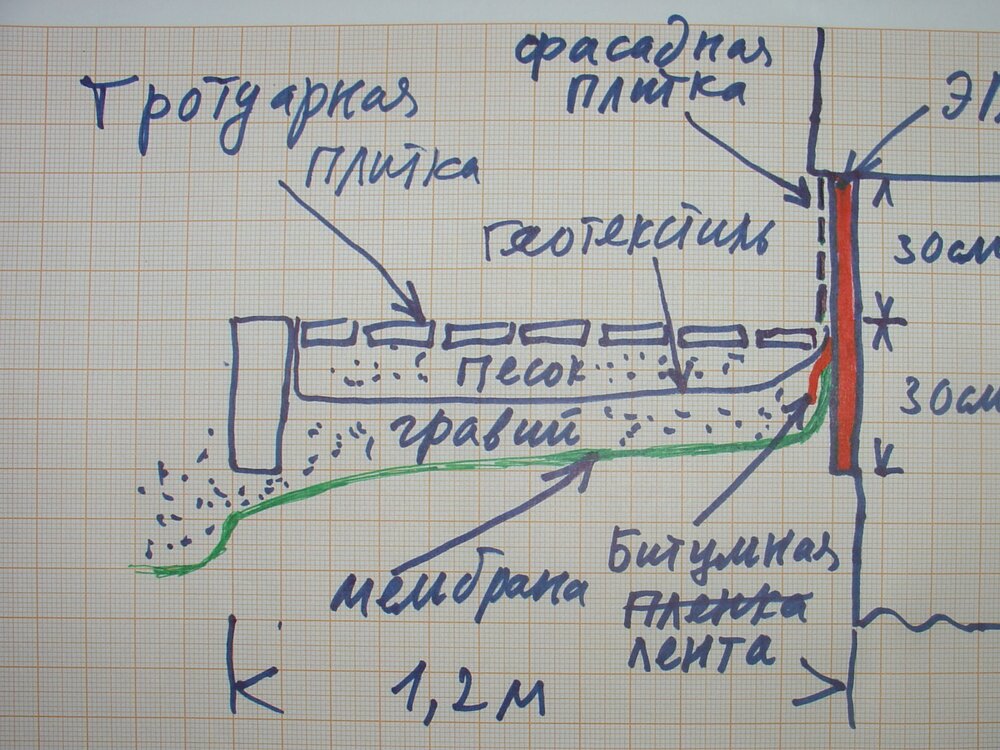 фасадная
плитка
Тротуарная
плитка
геотекстиль
30см
песок
гравий
30см
мембрана
Битумная
пленка
лента
1,2 м